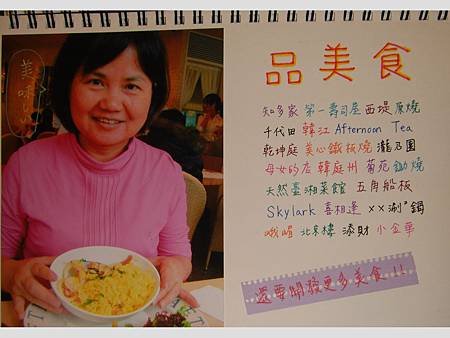 美味
品美食
知多家 第一壽司屋 西堤 原燒
千代田 韓江 Afternoon Tea
乾坤庭 美心鐵板燒 瀧乃園
母女的店 韓庭州 菊苑 鋤燒
天然臺湘菜館 五角船板
Skylark 喜相逢 ××涮涮鍋
峨嵋 北京樓 添財 小金華
還要開發更多美食!!